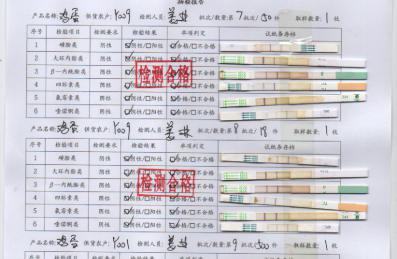 抽验报告
产品名称:鸡蛋 供货农户:Y009 检测人员: 批次/数量:第7批/50件 取样数量:1枚
序号 检验项目 检测要求 检验结果 单项判定 试纸条存档
1 磺胺类 阴性 ☑阴性/☐阳性 ☑合格/☐不合格
2 大环内酯类 阴性 ☑阴性/☐阳性 ☑合格/☐不合格
3 β-内酰胺类 阴性 ☑阴性/☐阳性 ☑合格/☐不合格
4 四环素类 阴性 ☑阴性/☐阳性 ☑合格/☐不合格
5 氨霉素类 阴性 ☑阴性/☐阳性 ☑合格/☐不合格
6 喹诺酮类 阴性 ☑阴性/☐阳性 ☑合格/☐不合格
检测合格
产品名称:鸡蛋 供货农户:Y009 检测人员: 批次/数量:第8批/18件 取样数量:1枚
序号 检验项目 检测要求 检验结果 单项判定 试纸条存档
1 磺胺类 阴性 ☑阴性/☐阳性 ☑合格/☐不合格
2 大环内酯类 阴性 ☑阴性/☐阳性 ☑合格/☐不合格
3 β-内酰胺类 阴性 ☑阴性/☐阳性 ☑合格/☐不合格
4 四环素类 阴性 ☑阴性/☐阳性 ☑合格/☐不合格
5 氨霉素类 阴性 ☑阴性/☐阳性 ☑合格/☐不合格
6 喹诺酮类 阴性 ☑阴性/☐阳性 ☑合格/☐不合格
检测合格
产品名称:鸡蛋 供货农户:Y001 检测人员: 批次/数量:第9批/300件 取样数量:1枚